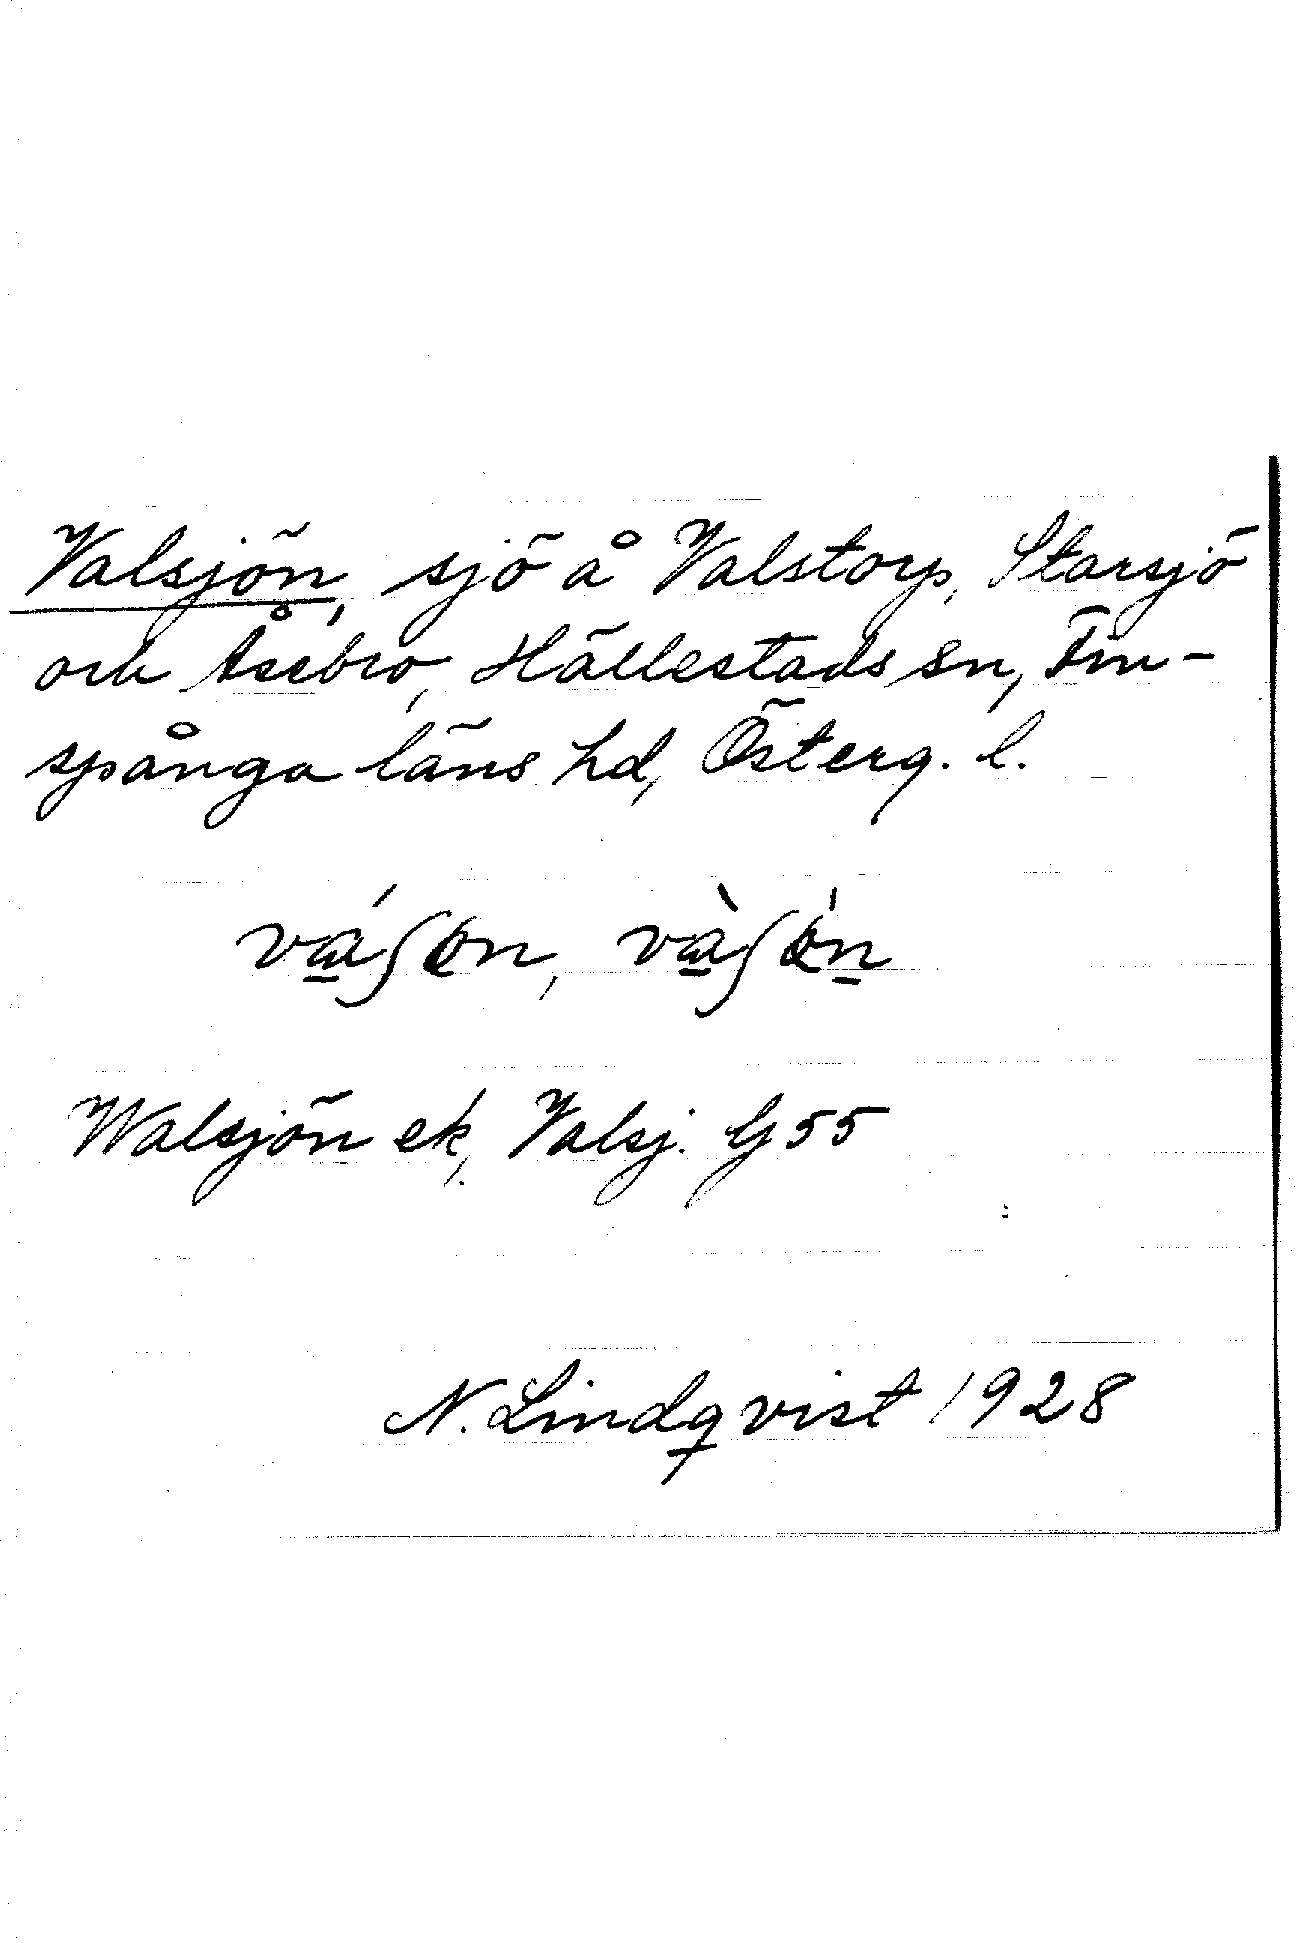 Valsjön, sjö å Valstorp, Starsjö
och Åsebro, Hällestads sn, Fin-
spånga läns hd, Österg. l.
Walsjön ek, Valsj. G 55
N. Lindqvist 1928